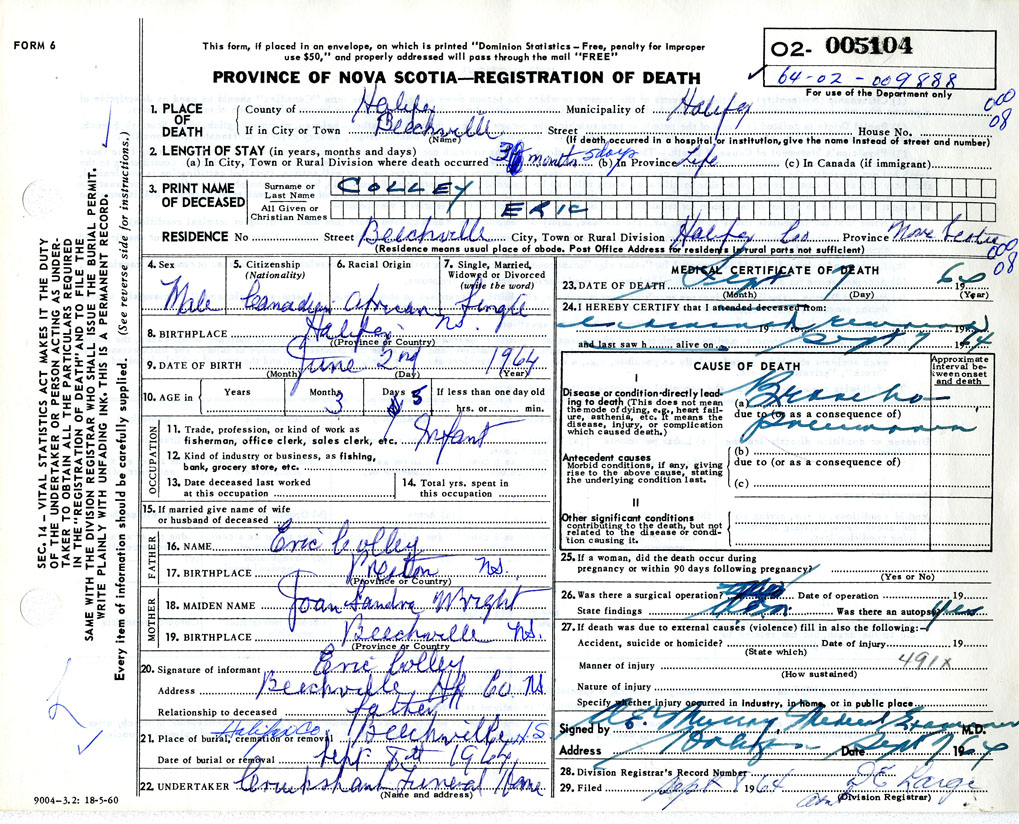 FORM 6
This form, if placed in an envelope, on which is printed "Dominion Statistics – Free, penalty for improper
use $50," and properly addressed will pass through the mail "FREE"
PROVINCE OF NOVA SCOTIA—REGISTRATION OF DEATH
O2- 005104
64-02-009888
For use of the Department only
SEC. 14 – VITAL STATISTICS ACT MAKES IT THE DUTY
OF THE UNDERTAKER OR PERSON ACTING AS UNDER-
TAKER TO OBTAIN ALL THE PARTICULARS REQUIRED
IN THE "REGISTRATION OF DEATH" AND TO FILE THE
SAME WITH THE DIVISION REGISTRAR WHO SHALL ISSUE THE BURIAL PERMIT.
WRITE PLAINLY WITH UNFADING INK. THIS IS A PERMANENT RECORD.
Every item of information should be carefully supplied. (See reverse side for instructions.)
1. PLACE OF DEATH
County of Halifax Municipality of Halifax
000
08
If in City or Town Beechville Street House No.
(Name) (If death occurred in a hospital or institution, give the name instead of street and number)
2. LENGTH OF STAY (in years, months and days)
(a) In City, Town or Rural Division where death occurred 3 months 5 days (b) In Province Life (c) In Canada (if immigrant)
3. PRINT NAME OF DECEASED
Surname or Last Name COLLEY
All Given or Christian Names ERIC
RESIDENCE No Street Beechville City, Town or Rural Division Halifax Co. Province Nova Scotia
(Residence means usual place of abode. Post Office Address for residents in rural parts not sufficient)
000
08
4. Sex 5. Citizenship (Nationality) 6. Racial Origin 7. Single, Married, Widowed or Divorced (write the word)
Male Canadian African Single
8. BIRTHPLACE Halifax N.S.
(Province or Country)
9. DATE OF BIRTH June 2nd 1964
(Month) (Day) (Year)
10. AGE in Years Months 3 Days 5 If less than one day old
hrs. or min.
OCCUPATION
11. Trade, profession, or kind of work as
fisherman, office clerk, sales clerk, etc. Infant
12. Kind of industry or business, as fishing,
bank, grocery store, etc.
13. Date deceased last worked
at this occupation
14. Total yrs. spent in
this occupation
15. If married give name of wife
or husband of deceased
FATHER
16. NAME Eric Colley
17. BIRTHPLACE Preston N.S.
(Province or Country)
MOTHER
18. MAIDEN NAME Joan Sandra Wright
19. BIRTHPLACE Beechville N.S.
(Province or Country)
20. Signature of informant Eric Colley
Address Beechville Hfx Co. N.S.
Relationship to deceased father
21. Place of burial, cremation or removal Halifax Co. Beechville N.S.
Date of burial or removal Sept. 8th 1964
22. UNDERTAKER Cruikshank Funeral Home
(Name and address)
9004–3.2: 18-5-60
MEDICAL CERTIFICATE OF DEATH
23. DATE OF DEATH Sept 7 1964
(Month) (Day) (Year)
24. I HEREBY CERTIFY that I attended deceased from:
19 19
and last saw h alive on Sept 7 1964
CAUSE OF DEATH
Approximate interval between onset and death
I
Disease or condition-directly lead-
ing to death (This does not mean
the mode of dying, e.g., heart fail-
ure, asthenia, etc. It means the
disease, injury, or complication
which caused death.)
(a) Broncho
due to (or as a consequence of)
Pneumonia
Antecedent causes
Morbid conditions, if any, giving
rise to the above cause, stating
the underlying condition last.
(b)
due to (or as a consequence of)
(c)
II
Other significant conditions
contributing to the death, but not
related to the disease or condi-
tion causing it.
25. If a woman, did the death occur during
pregnancy or within 90 days following pregnancy?
(Yes or No)
26. Was there a surgical operation Date of operation 19
State findings Was there an autopsy? Yes
27. If death was due to external causes (violence) fill in also the following:–
Accident, suicide or homicide? Date of injury 19
(State which)
491X
Manner of injury
(How sustained)
Nature of injury
Specify whether injury occurred in industry, in home, or in public place
Signed by Murray Medical Examiner M.D.
Address Date Sept 7 1964
28. Division Registrar's Record Number
29. Filed Sept 8 1964
(Division Registrar)